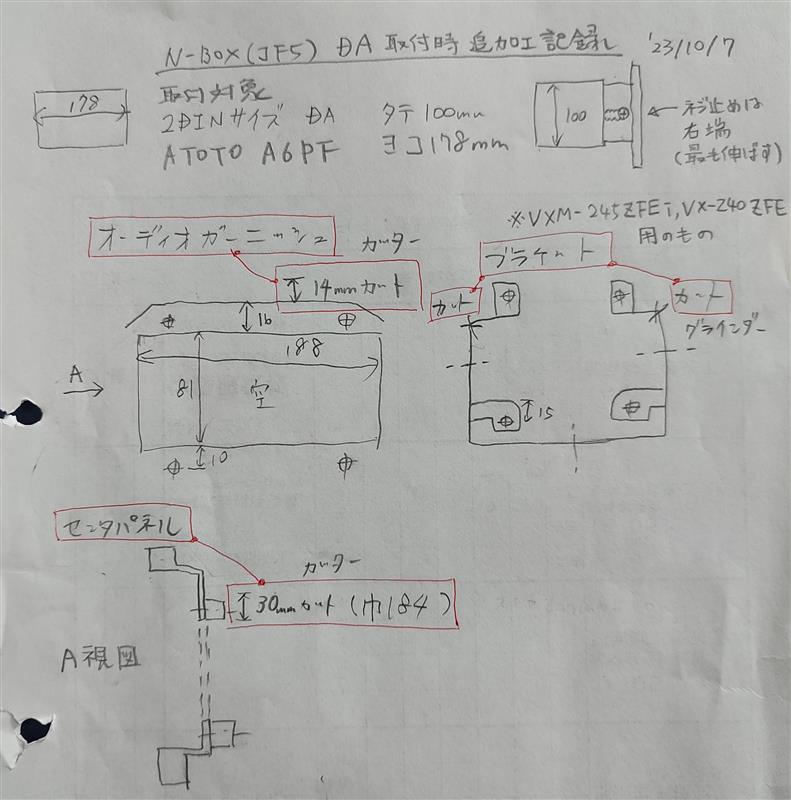 N-BOX(JF5) DA 取付時 追加工記録 '23/10/7
取付対象
178
2DINサイズ DA タテ100mm
ATOTO A6PF ヨコ178mm
100
ネジ止めは
右端
(最も伸ばす)
※VXM-245ZFEi,VX-240ZFE
用のもの
オーディオガーニッシュ
カッター
14mmカット
ブラケット
カット
カット
グラインダー
16
188
A
81
空
10
15
センタパネル
カッター
30mmカット(巾184)
A視図